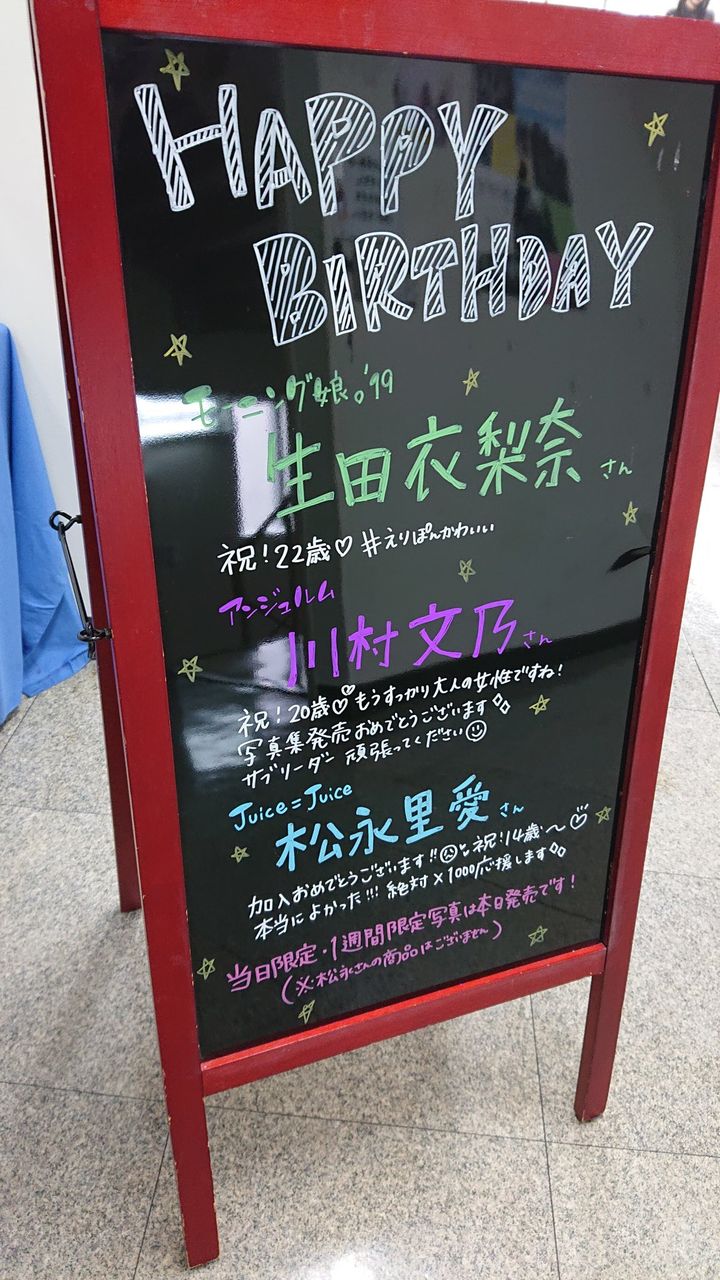 HAPPY
BIRTHDAY
モーニング娘。'99
生田衣梨奈 さん
祝!22歳♡ #えりぽんかわいい
アンジュルム
川村文乃 さん
祝!20歳♡ もうすっかり大人の女性ですね!
写真集発売おめでとうございます
サブリーダー 頑張ってください☺
Juice=Juice
松永里愛 さん
加入おめでとうございます!! 祝!14歳〜♡
本当によかった!!! 絶対×1000応援します
当日限定・1週間限定写真は本日発売です!
(※松永さんの商品はございません)